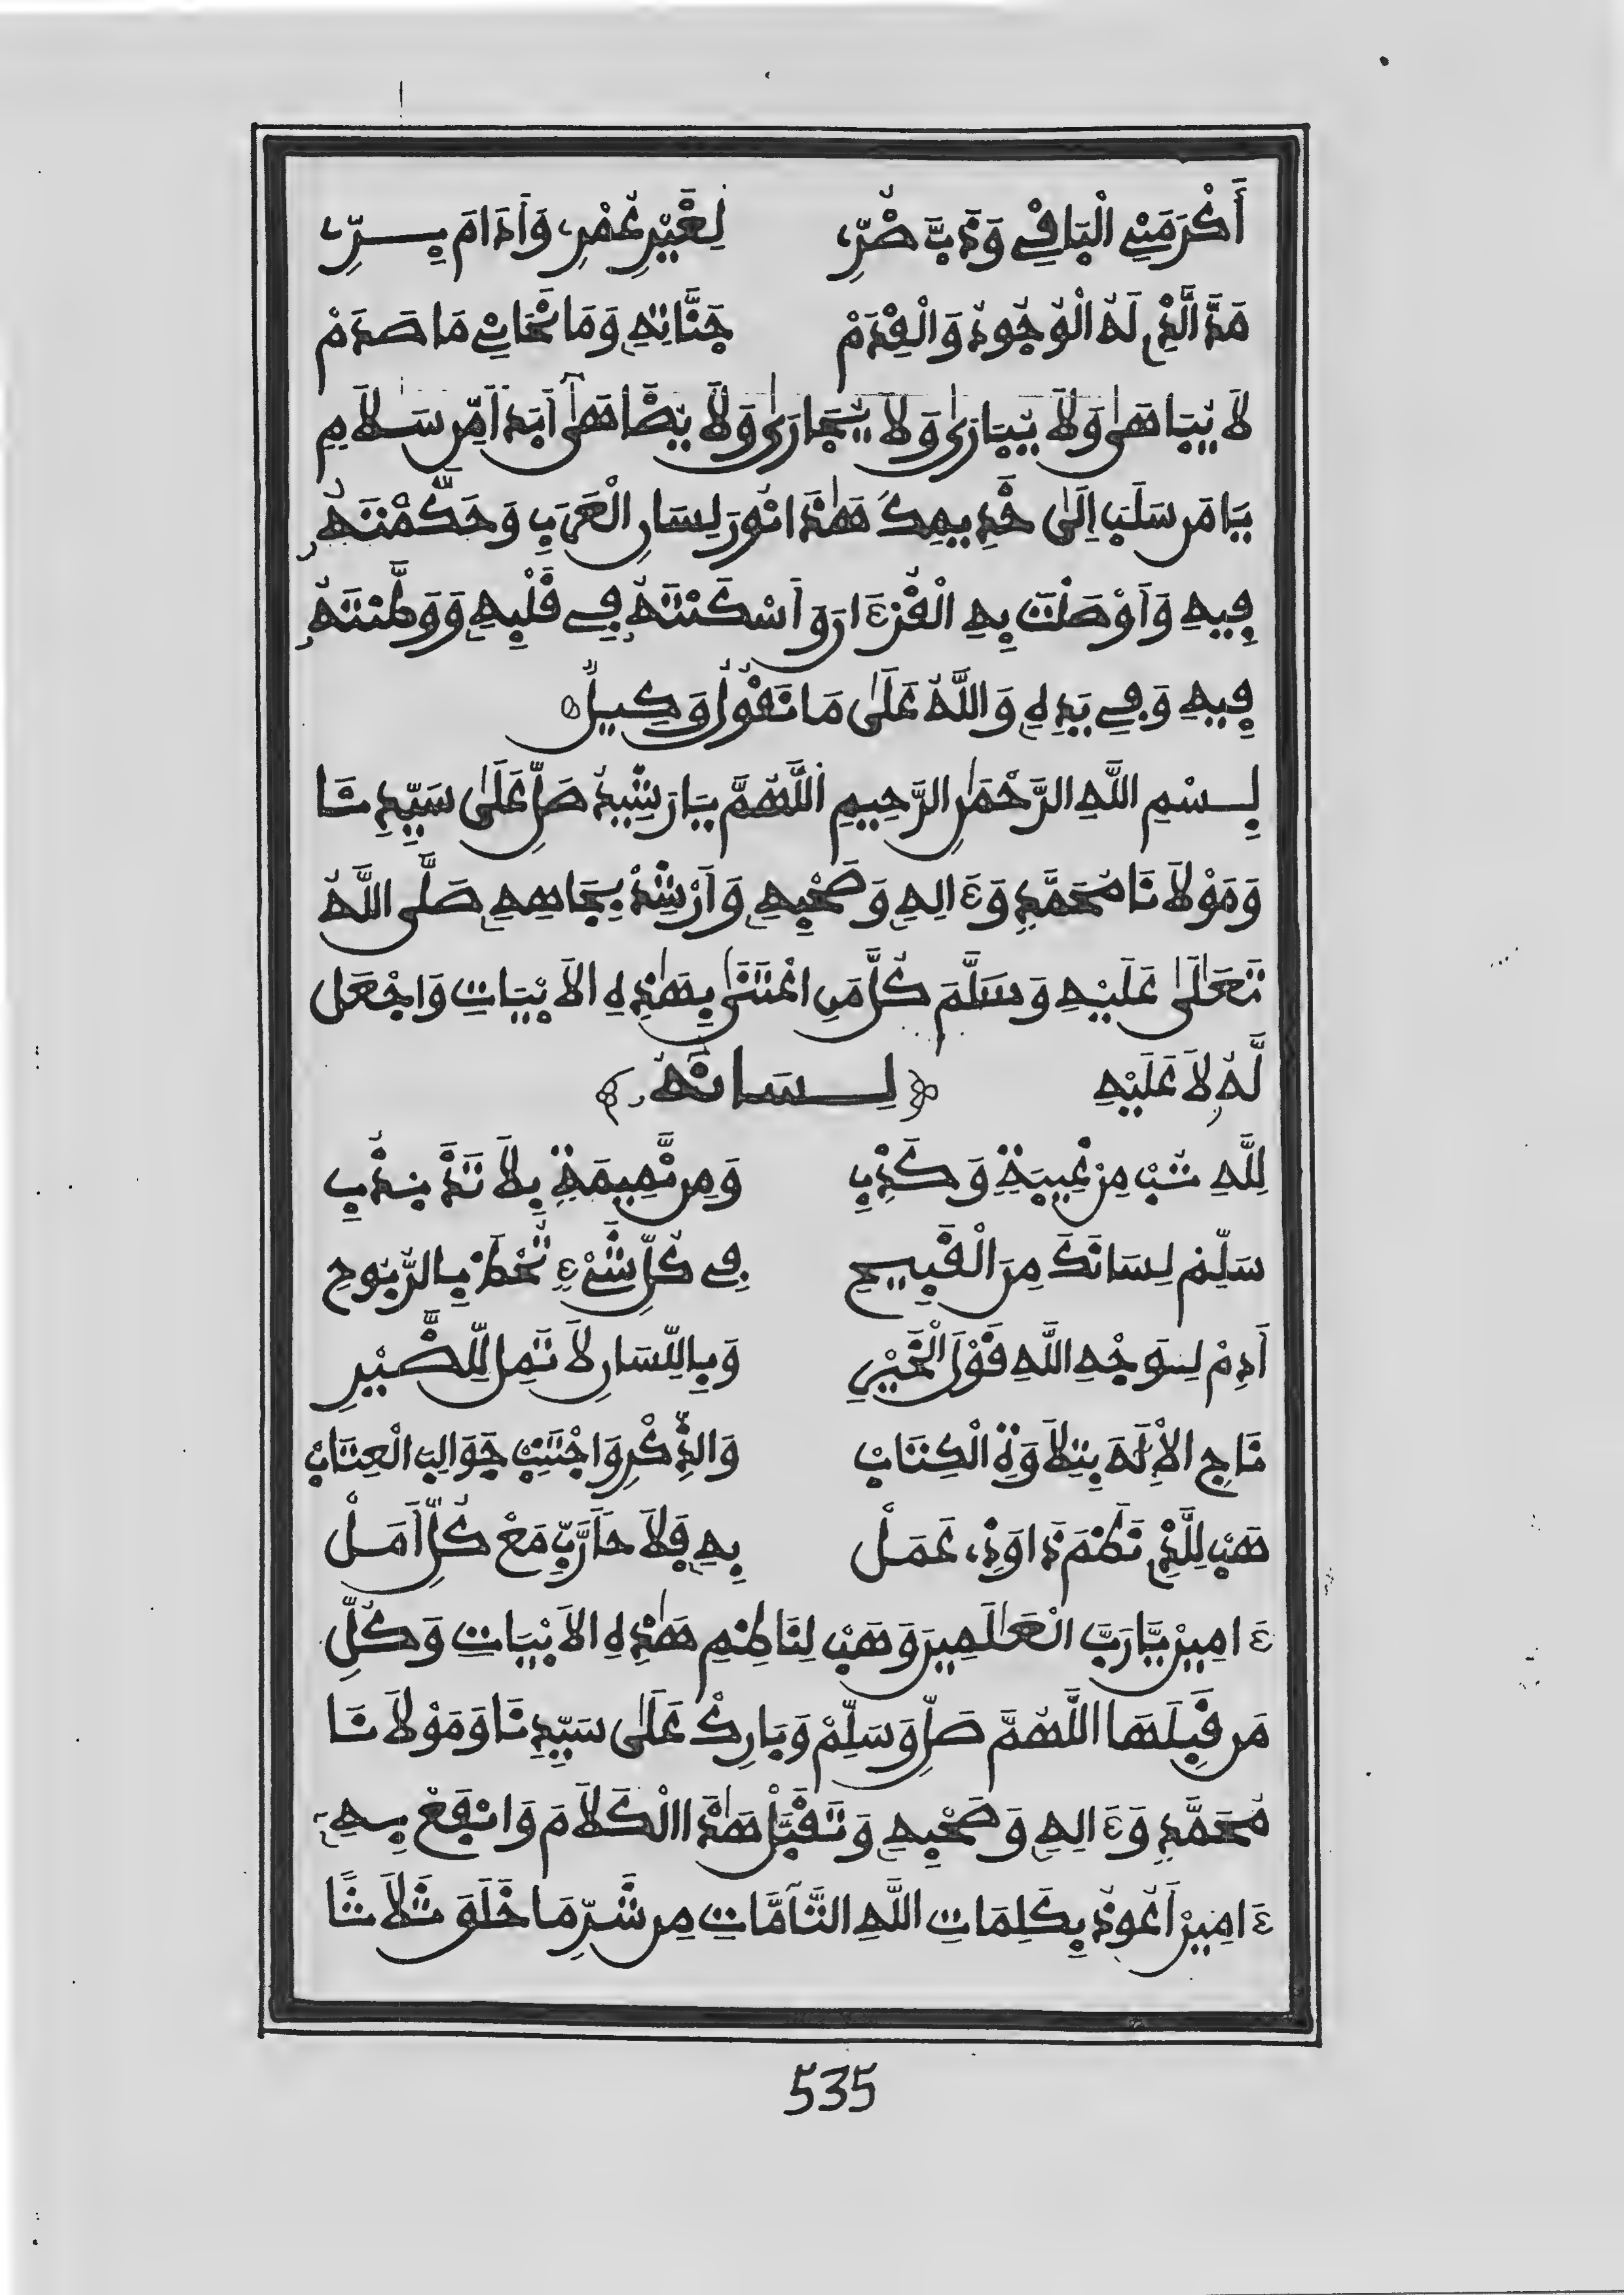 أَكْرَمَنِي الْبَاقِي وَذَبَّ ضُرِّي لِغَيْرِ عُمْرِي وَأَدَامَ بِرِّي
مَدَّ الَّذِي لَهُ الْوُجُودُ وَالْقِدَمْ جَنَّاتِهِ وَمَا نَحَانِي مَا صَدَمْ
لَا يُبَاهَىٰ وَلَا يُبَارَىٰ وَلَا يُجَارَىٰ وَلَا يُضَاهَىٰ أَبَدًا مِّن سَلَامٍ
يَا مَن سَلَبَ إِلَىٰ خَدِيمِكَ هَٰذَا نُورَ لِسَانِ الْعَرَبِ وَحَكَّمْتَهُ
فِيهِ وَأَوْصَلْتَ بِهِ الْقُرْءَانَ وَأَسْكَنْتَهُ فِي قَلْبِهِ وَوَطَّنْتَهُ
فِيهِ وَفِي يَدِهِ وَاللَّهُ عَلَىٰ مَا نَقُولُ وَكِيلٌ
بِسْمِ اللَّهِ الرَّحْمَٰنِ الرَّحِيمِ اللَّهُمَّ يَا رَشِيدُ صَلِّ عَلَىٰ سَيِّدِنَا
وَمَوْلَانَا مُحَمَّدٍ وَءَالِهِ وَصَحْبِهِ وَأَرْشِدْ بِجَاهِهِ صَلَّى اللَّهُ
تَعَالَىٰ عَلَيْهِ وَسَلَّمَ كُلَّ مَنِ اعْتَنَىٰ بِهَٰذِهِ الْأَبْيَاتِ وَاجْعَل
لَّهُ لَا عَلَيْهِ ﴿لِسَانَهُ﴾
لِلَّهِ تُبْ مِنْ غِيبَةٍ وَكَذِبِ وَمِن نَّمِيمَةٍ بِلَا تَذَبْذُبِ
سَلِّمْ لِسَانَكَ مِنَ الْقَبِيحِ فِي كُلِّ شَيْءٍ تُحْظَ بِالرُّبُوحِ
أَدِمْ لِوَجْهِ اللَّهِ قَوْلَ الْخَيْرِ وَبِاللِّسَانِ لَا تَمِلْ لِلضَّيْرِ
نَاجِ الْإِلَٰهَ بِتِلَاوَةِ الْكِتَابْ وَالذِّكْرِ وَاجْتَنِبْ جَوَالِبَ الْعِتَابْ
هَبْ لِلَّذِي نَظَمَ ذَا وَذِي عَمَلْ بِهِ فَلَاحًا رَّبِّ مَعْ كُلِّ أَمَلْ
ءَامِينْ يَا رَبَّ الْعَالَمِينَ وَهَبْ لِنَاظِمِ هَٰذِهِ الْأَبْيَاتِ وَكُلِّ
مَن قَبِلَهَا اللَّهُمَّ صَلِّ وَسَلِّمْ وَبَارِكْ عَلَىٰ سَيِّدِنَا وَمَوْلَانَا
مُحَمَّدٍ وَءَالِهِ وَصَحْبِهِ وَتَقَبَّلْ هَٰذَا الْكَلَامَ وَانْفَعْ بِهِ
ءَامِينْ أَعُوذُ بِكَلِمَاتِ اللَّهِ التَّآمَّاتِ مِن شَرِّ مَا خَلَقَ ثَلَاثًا
535